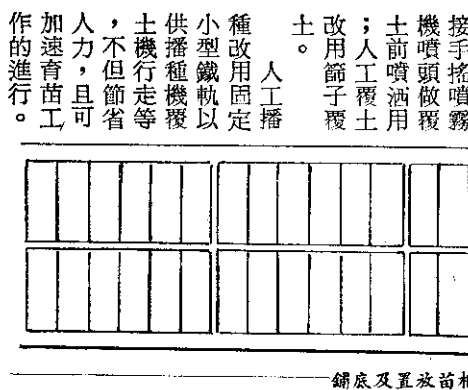 接手搖噴霧
機噴頭做覆
土前噴洒用
；人工覆土
改用篩子覆
土。
人工播
種改用固定
小型鐵軌以
供播種機覆
土機行走等
，不但節省
人力，且可
加速育苗工
作的進行。
鋪底及置放苗